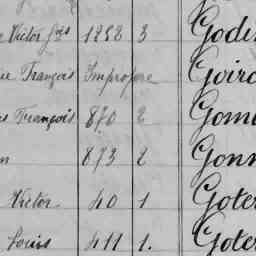 Victor fils 1258 3 Godi
François Impropre Goiro
François 870 2 Gom
873 2 Gonn
Victor 40 1 Goter
Louis 411 1. Goter